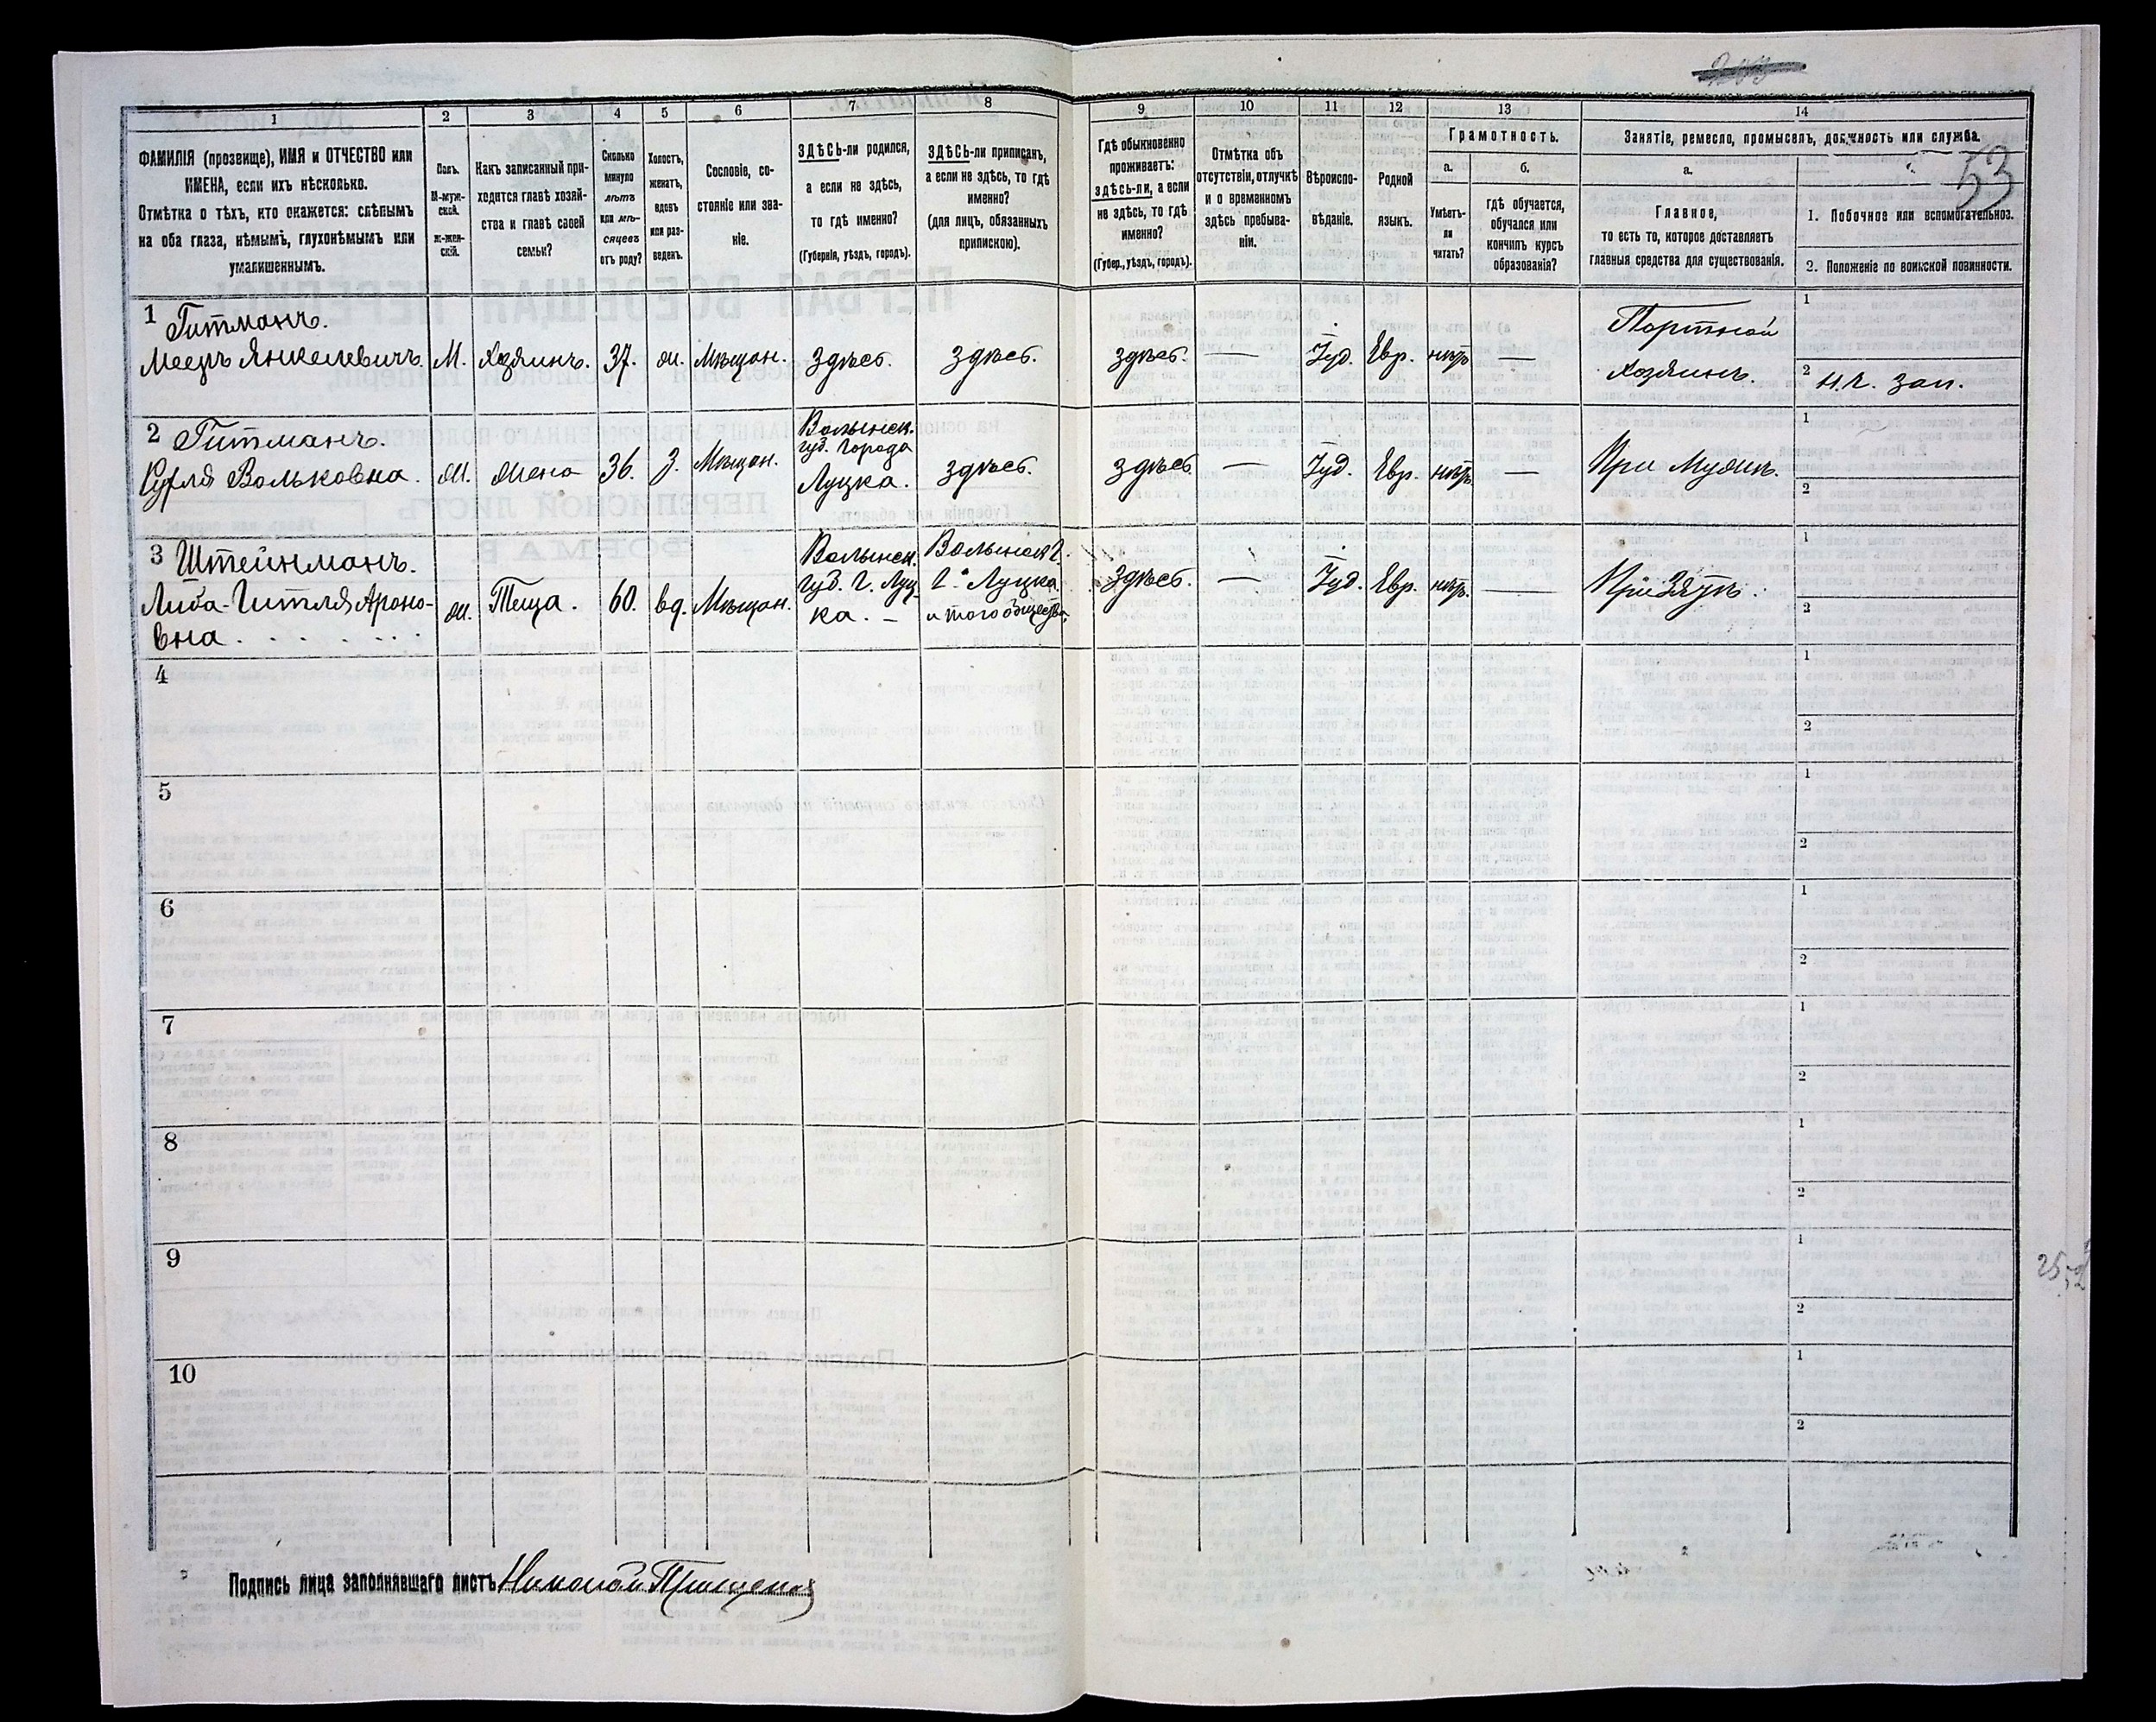 1
2
3
4
5
6
7
8
9
10
11
12
13
14
ФАМИЛІЯ (прозвище), ИМЯ и ОТЧЕСТВО или
ИМЕНА, если ихъ нѣсколько.
Отмѣтка о тѣхъ, кто окажется: слѣпымъ
на оба глаза, нѣмымъ, глухонѣмымъ или
умалишеннымъ.
Полъ.
М-муж-
ской.
Ж-жен-
скій.
Какъ записанный при-
ходится главѣ хозяй-
ства и главѣ своей
семьи?
Сколько
минуло
лѣтъ
или мѣ-
сяцевъ
отъ роду?
Холостъ,
женатъ,
вдовъ
или раз-
веденъ.
Сословіе, со-
стояніе или зва-
ніе.
ЗДѢСЬ-ли родился,
а если не здѣсь,
то гдѣ именно?
(Губернія, уѣздъ, городъ).
ЗДѢСЬ-ли приписанъ,
а если не здѣсь, то гдѣ
именно?
(для лицъ, обязанныхъ
припискою).
Гдѣ обыкновенно
проживаетъ:
здѣсь-ли, а если
не здѣсь, то гдѣ
именно?
(Губер., уѣздъ, городъ).
Отмѣтка объ
отсутствіи, отлучкѣ
и о временномъ
здѣсь пребыва-
ніи.
Вѣроиспо-
вѣданіе.
Родной
языкъ.
Грамотность.
а.
Умѣетъ-
ли
читать?
б.
гдѣ обучается,
обучался или
кончилъ курсъ
образованія?
Занятіе, ремесло, промыселъ, должность или служба.
53
а.
Главное,
то есть то, которое доставляетъ
главныя средства для существованія.
1. Побочное или вспомогательное.
2. Положеніе по воинской повинности.
1 Гитманъ.
Янкелевичъ. М. Хозяинъ. 37. Мѣщан. Здѣсь. Здѣсь. Здѣсь. — Іуд. Евр. нѣтъ —
Портной
Хозяинъ.
1
2
зап.
2 Гитманъ.
Вольковна. Жена 36. З. Мѣщан.
Волынск.
губ. города
Луцка.
здѣсь. здѣсь — Іуд. Евр. нѣтъ —
При
1
2
3 Штейнманъ.
Либа-Гитля Ароно-
вна.
Теща. 60. вд. Мѣщан.
Волынск.
губ. г. Луц-
ка. —
Волынск г.
г. Луцка
и того общества
Здѣсь. — Іуд. Евр. нѣтъ. —
При Зятѣ.
1
2
4
1
2
5
1
2
6
1
2
7
1
2
8
1
2
9
1
2
10
1
2
Подпись лица заполнявшаго листъ Николай